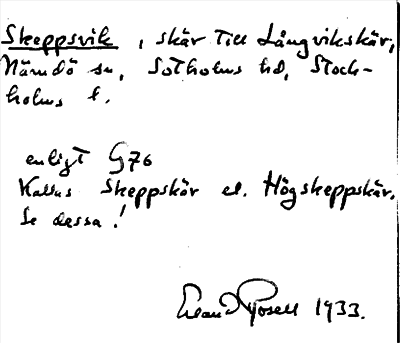 Skeppsvik, skär till Långvikskär,
Nämdö sn, Sotholms hd, Stock-
holms l.
enligt G76
Kallas Skeppskär el. Högskeppskär.
Se dessa!
Rosell 1933.